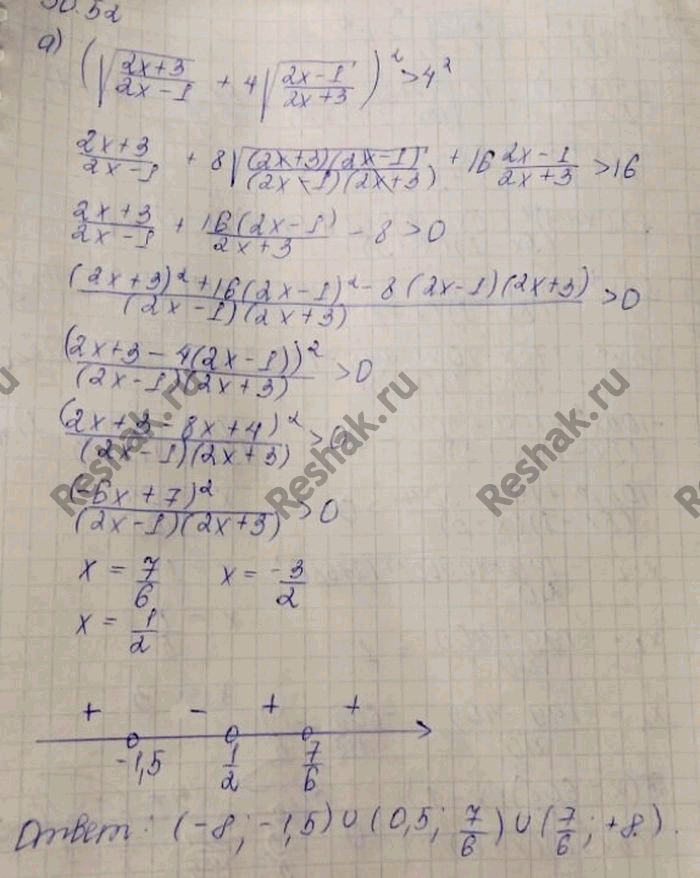 30.52
а) (√((2x+3)/(2x-1)) + 4√((2x-1)/(2x+3)))² > 4²
(2x+3)/(2x-1) + 8√((2x+3)(2x-1)/(2x-1)(2x+3)) + 16 (2x-1)/(2x+3) > 16
(2x+3)/(2x-1) + 16(2x-1)/(2x+3) - 8 > 0
((2x+3)² + 16(2x-1)² - 8(2x-1)(2x+3))/((2x-1)(2x+3)) > 0
(2x+3-4(2x-1))²/((2x-1)(2x+3)) > 0
(2x+3-8x+4)²/((2x-1)(2x+3)) > 0
(-6x+7)²/((2x-1)(2x+3)) > 0
x = 7/6 x = -3/2
x = 1/2
+ - + +
-1,5 1/2 7/6
Ответ: (-8; -1,5) ∪ (0,5; 7/6) ∪ (7/6; +8).
Reshak.ru
Reshak.ru
Reshak.ru